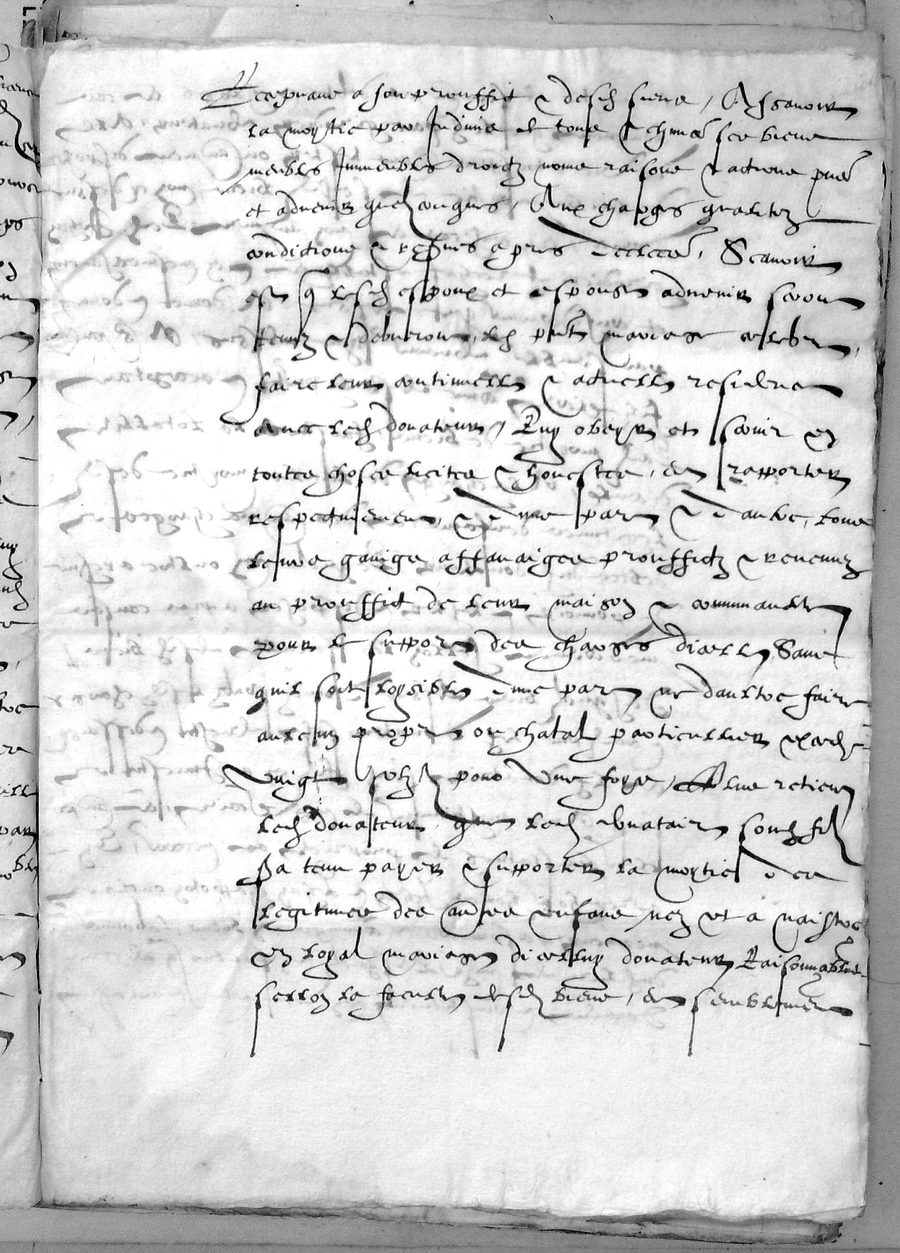 acceptant a son prouffit & desd siens / Assavoir
la moytie par Indivis de tous & chuns ses biens
meubles Immeubles droictz noms raisons & actions pnts
et advenir quelconques / Aux charges qualitez
conditions & reserves apres declerees / Scavoir
est q lesd espoux et espouse advenir seront
tenuz & debvront led pnt mariage celebre,
faire leur continuelle & actuelle residence
avec led donateur / Luy obeyr et servir en
toutes choses licites & honestes, et rapporter
respectivement, & d'une part & d'aultre, tous
leurs gaiges affanaiges prouffictz & revenuz
au prouffit de leur maison & communaulte
pour le support des charges d'icelle Sans
quil soit loysible d'une part ne daultre faire
aulcun propre ou chatal particullier excede
vingt solz pour une foys, Plus retient
led donateur, que led donataire sond filz
sa tenu payer & supporter la moytie des
legitimes des aultres enfans nez et a naistre
en loyal mariage dicelluy donateur Raisonnablement
sellon la faculte desd biens, et semblablement